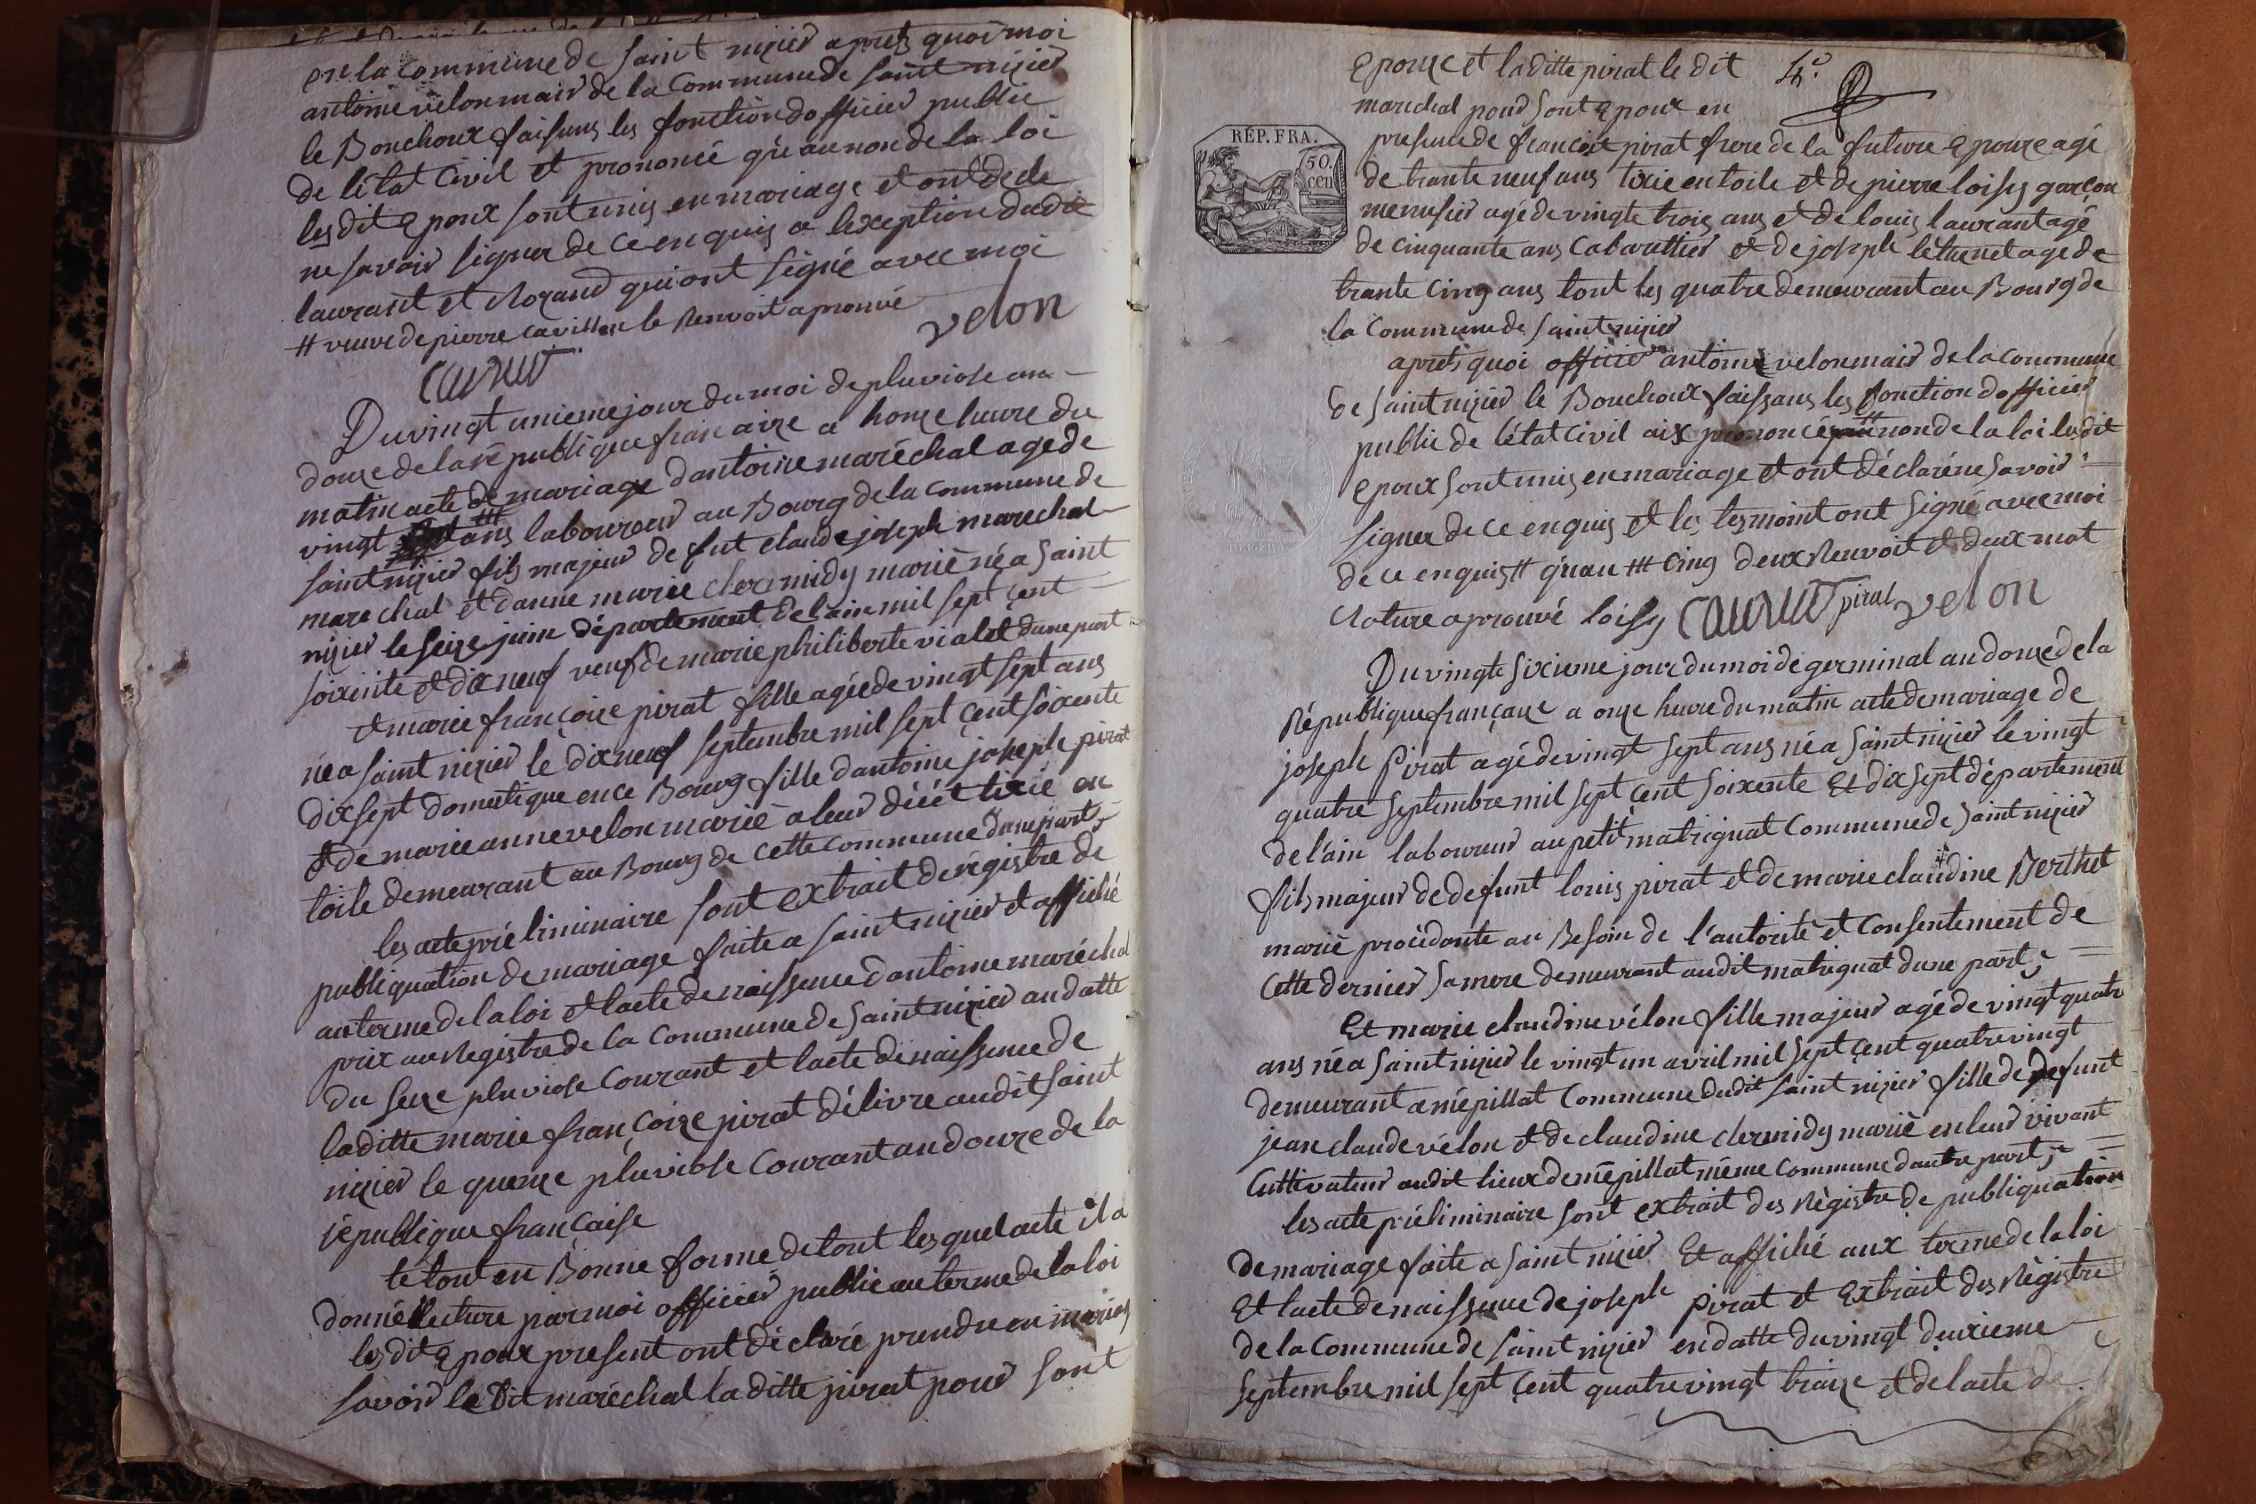 en la commune de saint nizier apres quoi moi
antoine velon mair de la Commune de saint nizier
le Bouchoux faisans les fonction dofficier public
de létat Civil et prononcé qu'au non de la loi
les dit Epoux sont unis en mariage et ont déclé
ne savoir signer de ce enquis a lexception dudit
laurant et Morand qui ont signé avec moi
# veuve de pierre cavillon le Renvoit aprouvé velon
laurut
Du vingt unieme jour du moi de pluviose an
douze de la république francaize a honze heure du
matin acte de mariage dantoine maréchal age de
vingt ans laboureur au Bourg de la commune de
saint nizier fils majeur de fut claude joseph marechal
marechal et danne marie chermidy marié né a saint
nizier le seize juin département de lain mil sept çent
soixente et dix neuf veuf de marie philiberte vialet dune part
et marie françoize pirat fille agée de vingt sept ans
née a saint nizier le dix neuf septembre mil sept çent soixente
dix sept domestique en ce Bourg fille dantoine joseph pirat
et de marie anne velon marié a leur décét tixié en
toile demeurant au Bourg de cette commune dune part
les acte préliminaire sont extrait de régistre de
publiquation de mariage faite a saint nizier et affiché
au terme de la loi et lacte de naissence dantoine maréchal
prix au Registre de la Commune de saint nizier au datte
du seize pluviose Courant et lacte de naissence de
laditte marie françoize pirat délivre audit saint
nizier le quenze pluviose Courant an douze de la
république française
le tout en Bonne forme de tout les quel acte il a
donné lecture par moi officier public au terme de la loi
les dit Epoux present ont déclaré prendre en mariag
savoir le Dit maréchal la ditte pirat pour sont
Epouze et laditte pirat le dit 4e
marechal pour sont Epoux en
presence de francois pirat frere de la future Epouze agé
de trante neuf ans tixié en toile et de pierre loisy garçon
menusier agé de vingte trois ans et de louis laurant agé
de cinquante ans Cabarettier et de joseph léthenet age de
trante cinq ans tout les quatre demeurant au Bourg de
la Commune de saint nizier
apres quoi officier antoine velon mair de la commune
de saint nizier le Bouchoux faissans les fonction dofficier
public de létat civil aix prononcé # non de la loi les dit
Epoux sont unis en mariage et ont déclaré ne savoir
signer de ce enquis et les tesmoint ont signé avec moi
de ce enquis # qu'au ## cinq deux Renvoit et deux mot
Rature aprouvé loisy laurut pirat velon
Du vingte sixieme jour du moi de germinal an douze de la
République françaize a onze heure du matin acte de mariage de
joseph Pirat agé de vingt sept ans né a Saint nizier le vingt
quatre septembre mil sept çent soixente Et dix sept département
de l'ain laboureur au petit matrignat Commune de saint nizier
fils majeur de defunt louis pirat et de marie claudine Berthet
marié procédante au Besoin de l'autorité et Consentement de
Cette dernier sa mere demeurant audit matrignat dune part
Et marie claudine vélon fille majeur agé de vingt quatre
ans né a Saint nizier le vingt un avril mil sept çent quatre vingt
demeurant a mépillat Commune dudit saint nizier fille de defunt
jean claude vélon et de claudine chermidy marié en leur vivant
Cultivateur audit lieux de mépillat même commune dautre part
les acte préliminaire sont extrait des Régistre de publiquation
de mariage faite a saint nizier Et affiché aux terme de la loi
Et lacte de naissence de joseph pirat et Extrait des Régistre
de la Commune de saint nizier en datte du vingt deuxieme
septembre mil sept çent quatre vingt traize et de lacte de
RÉP. FRA.
50.
cen